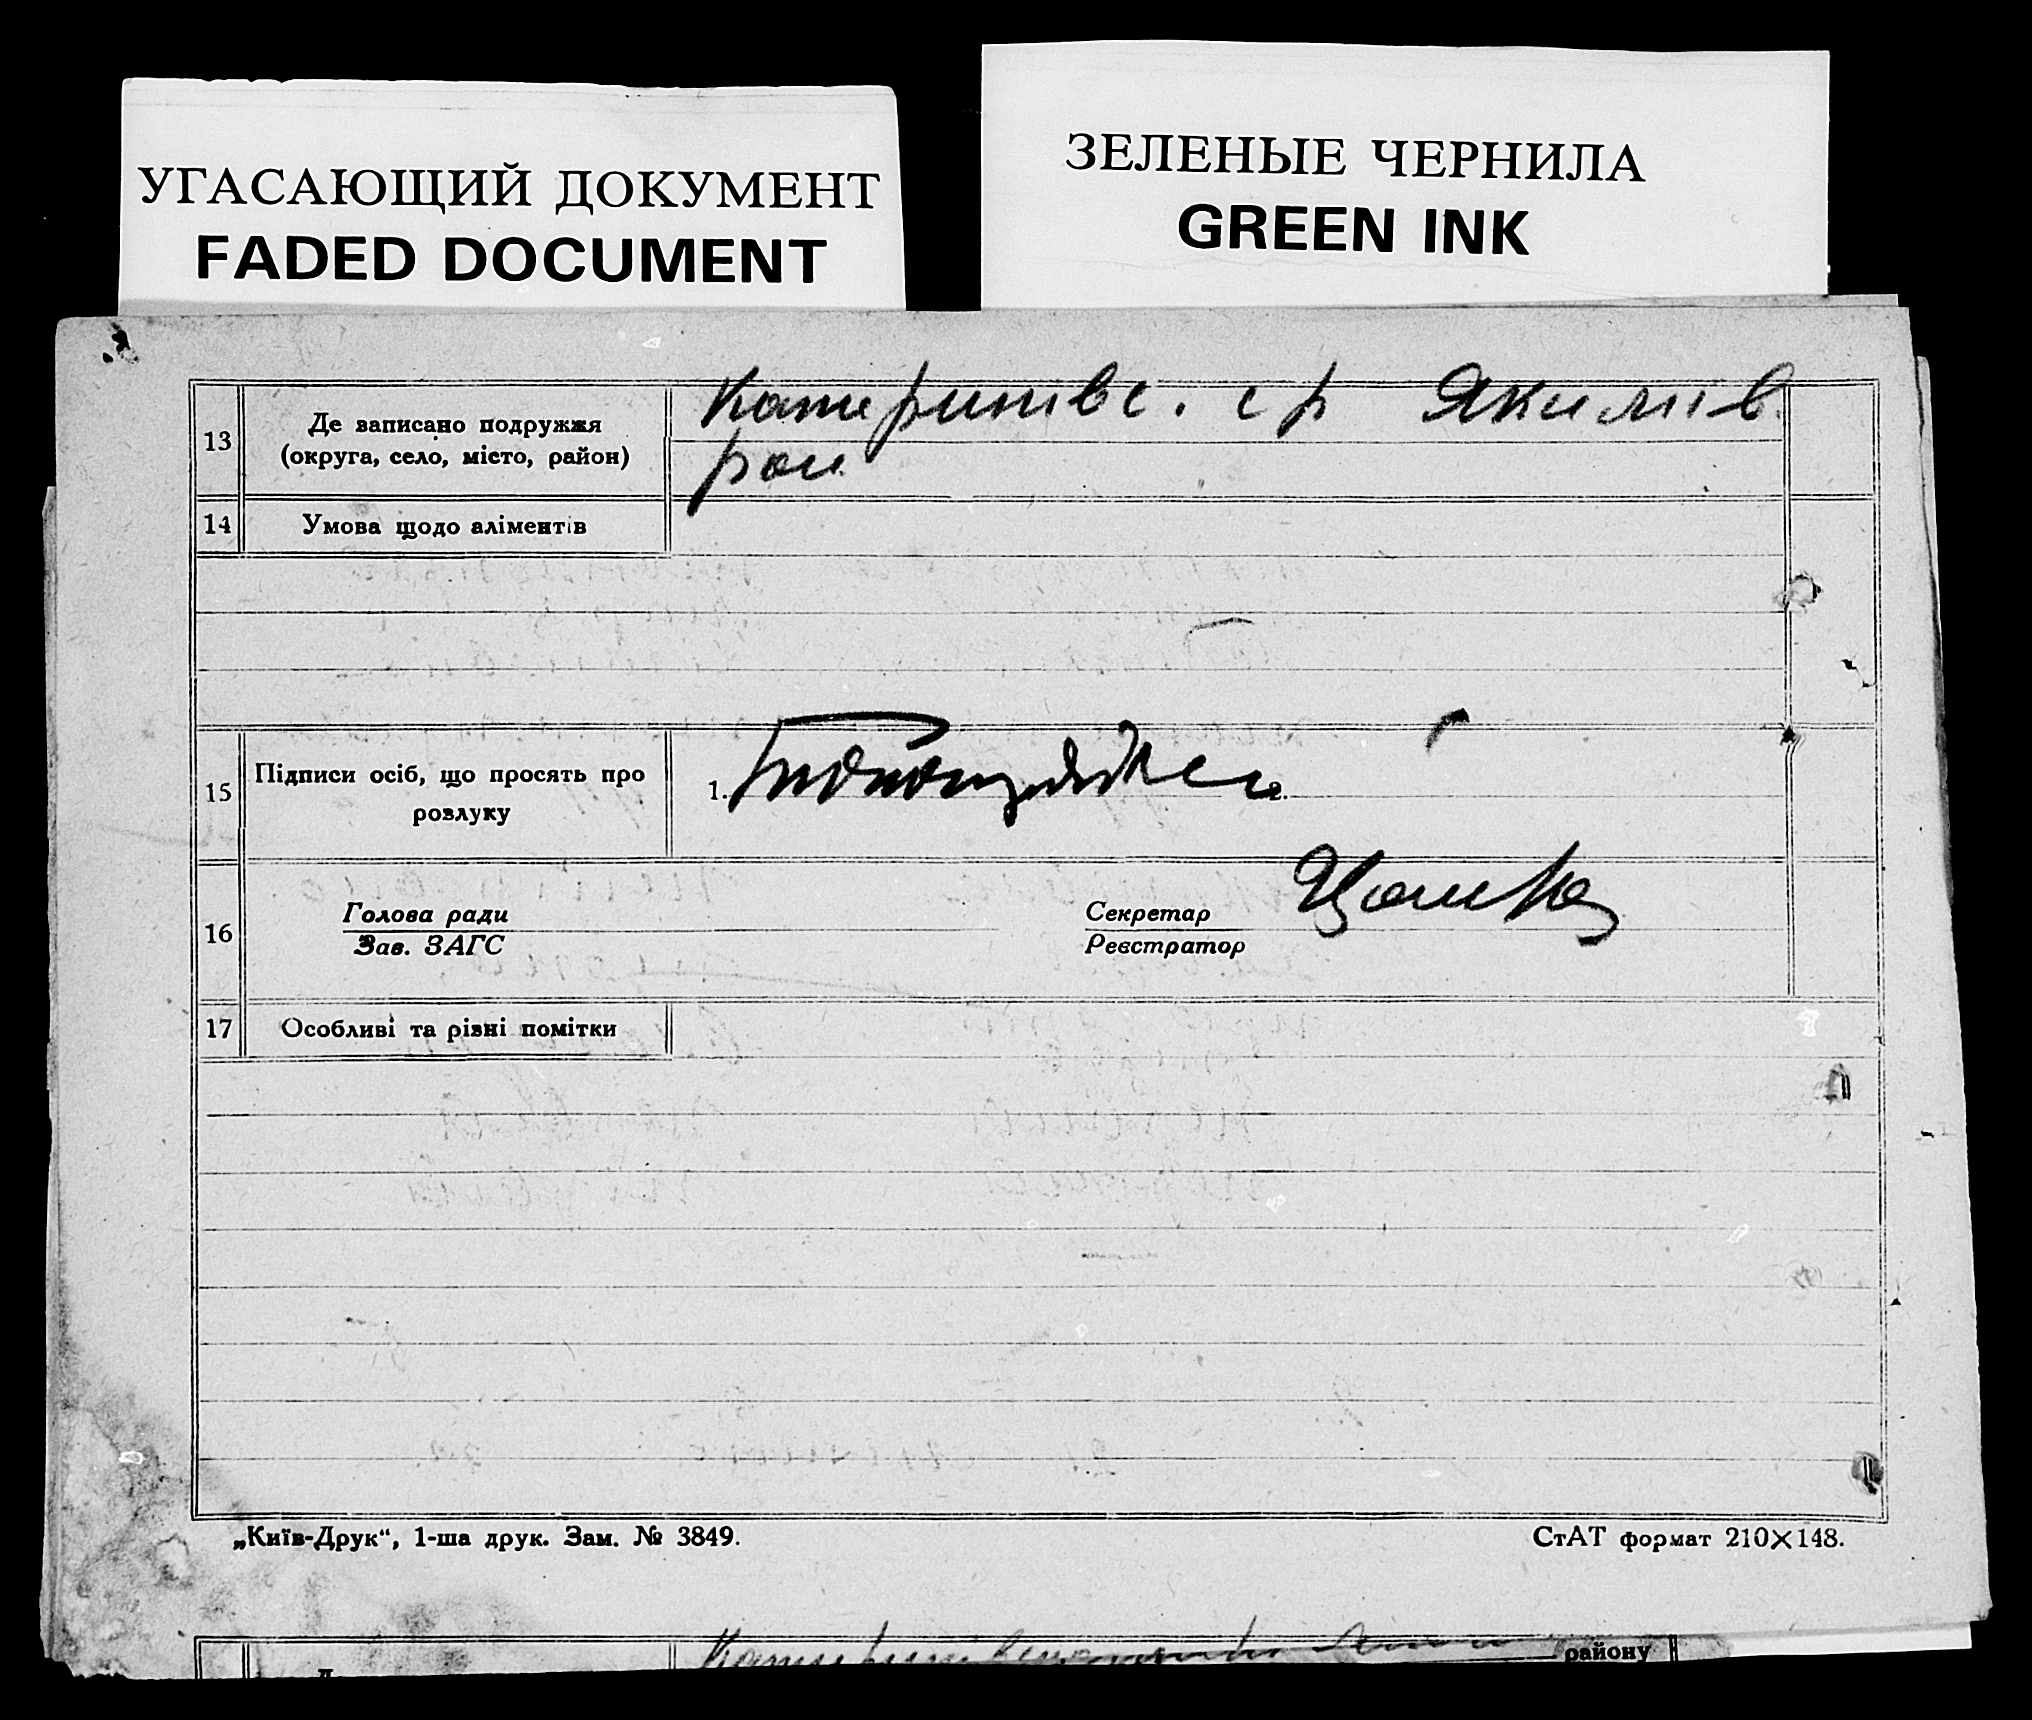 УГАСАЮЩИЙ ДОКУМЕНТ
FADED DOCUMENT
ЗЕЛЕНЫЕ ЧЕРНИЛА
GREEN INK
13 Де записано подружжя (округа, село, місто, район) Катеринівс. с р Якимів.
рай.
14 Умова щодо аліментів
15 Підписи осіб, що просять про розлуку 1. 2.
16 Голова ради
Зав. ЗАГС
Секретар
Реєстратор
17 Особливі та різні помітки
„Київ-Друк“, 1-ша друк. Зам. № 3849.
СтАТ формат 210×148.
району